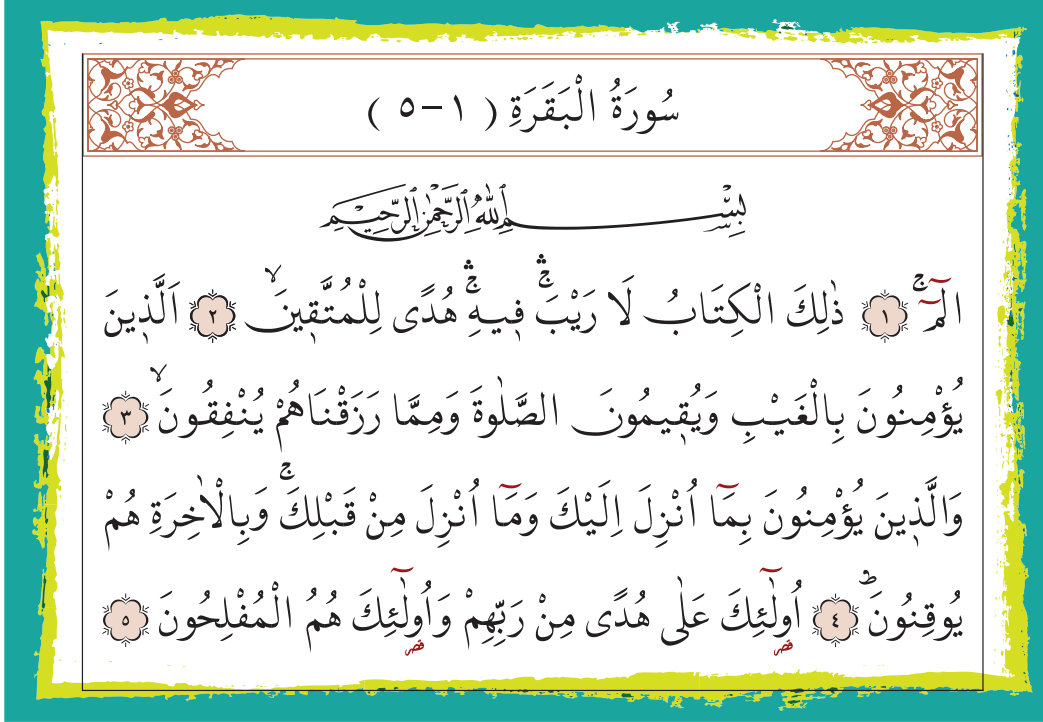 سُورَةُ الْبَقَرَةِ ( ١-٥ )
بِسْمِ اللّٰهِ الرَّحْمٰنِ الرَّحِيمِ
الٓمٓ ۚ ﴿١﴾ ذٰلِكَ الْكِتَابُ لَا رَيْبَ ۛۚ فٖيهِ ۛۚ هُدًى لِلْمُتَّقٖينَ ۙ ﴿٢﴾ اَلَّذٖينَ
يُؤْمِنُونَ بِالْغَيْبِ وَيُقٖيمُونَ الصَّلٰوةَ وَمِمَّا رَزَقْنَاهُمْ يُنْفِقُونَ ۙ ﴿٣﴾
وَالَّذٖينَ يُؤْمِنُونَ بِمَٓا اُنْزِلَ اِلَيْكَ وَمَٓا اُنْزِلَ مِنْ قَبْلِكَ ۚ وَبِالْاٰخِرَةِ هُمْ
يُوقِنُونَ ؕ ﴿٤﴾ اُو۬لٰٓئِكَ عَلٰى هُدًى مِنْ رَبِّهِمْ وَاُو۬لٰٓئِكَ هُمُ الْمُفْلِحُونَ ﴿٥﴾
قصر قصر